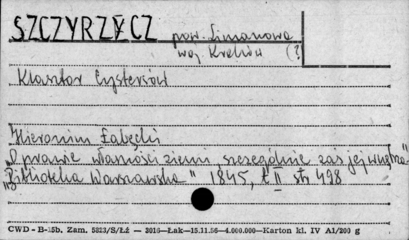 SZCZYRZYCZ pow. Limanowa
woj. Kraków (?)
Klasztor Cystersów
Hieronim Łabęcki
„O prawie własności ziemi, szczególnie zaś jej wnętrza"
„Biblioteka Warszawska" 1845, t II str 498
CWD - B-15b. Zam. 5823/S/Łź — 3010—Łak—15.11.56—4.000.000—Karton kl. IV A1/200 g